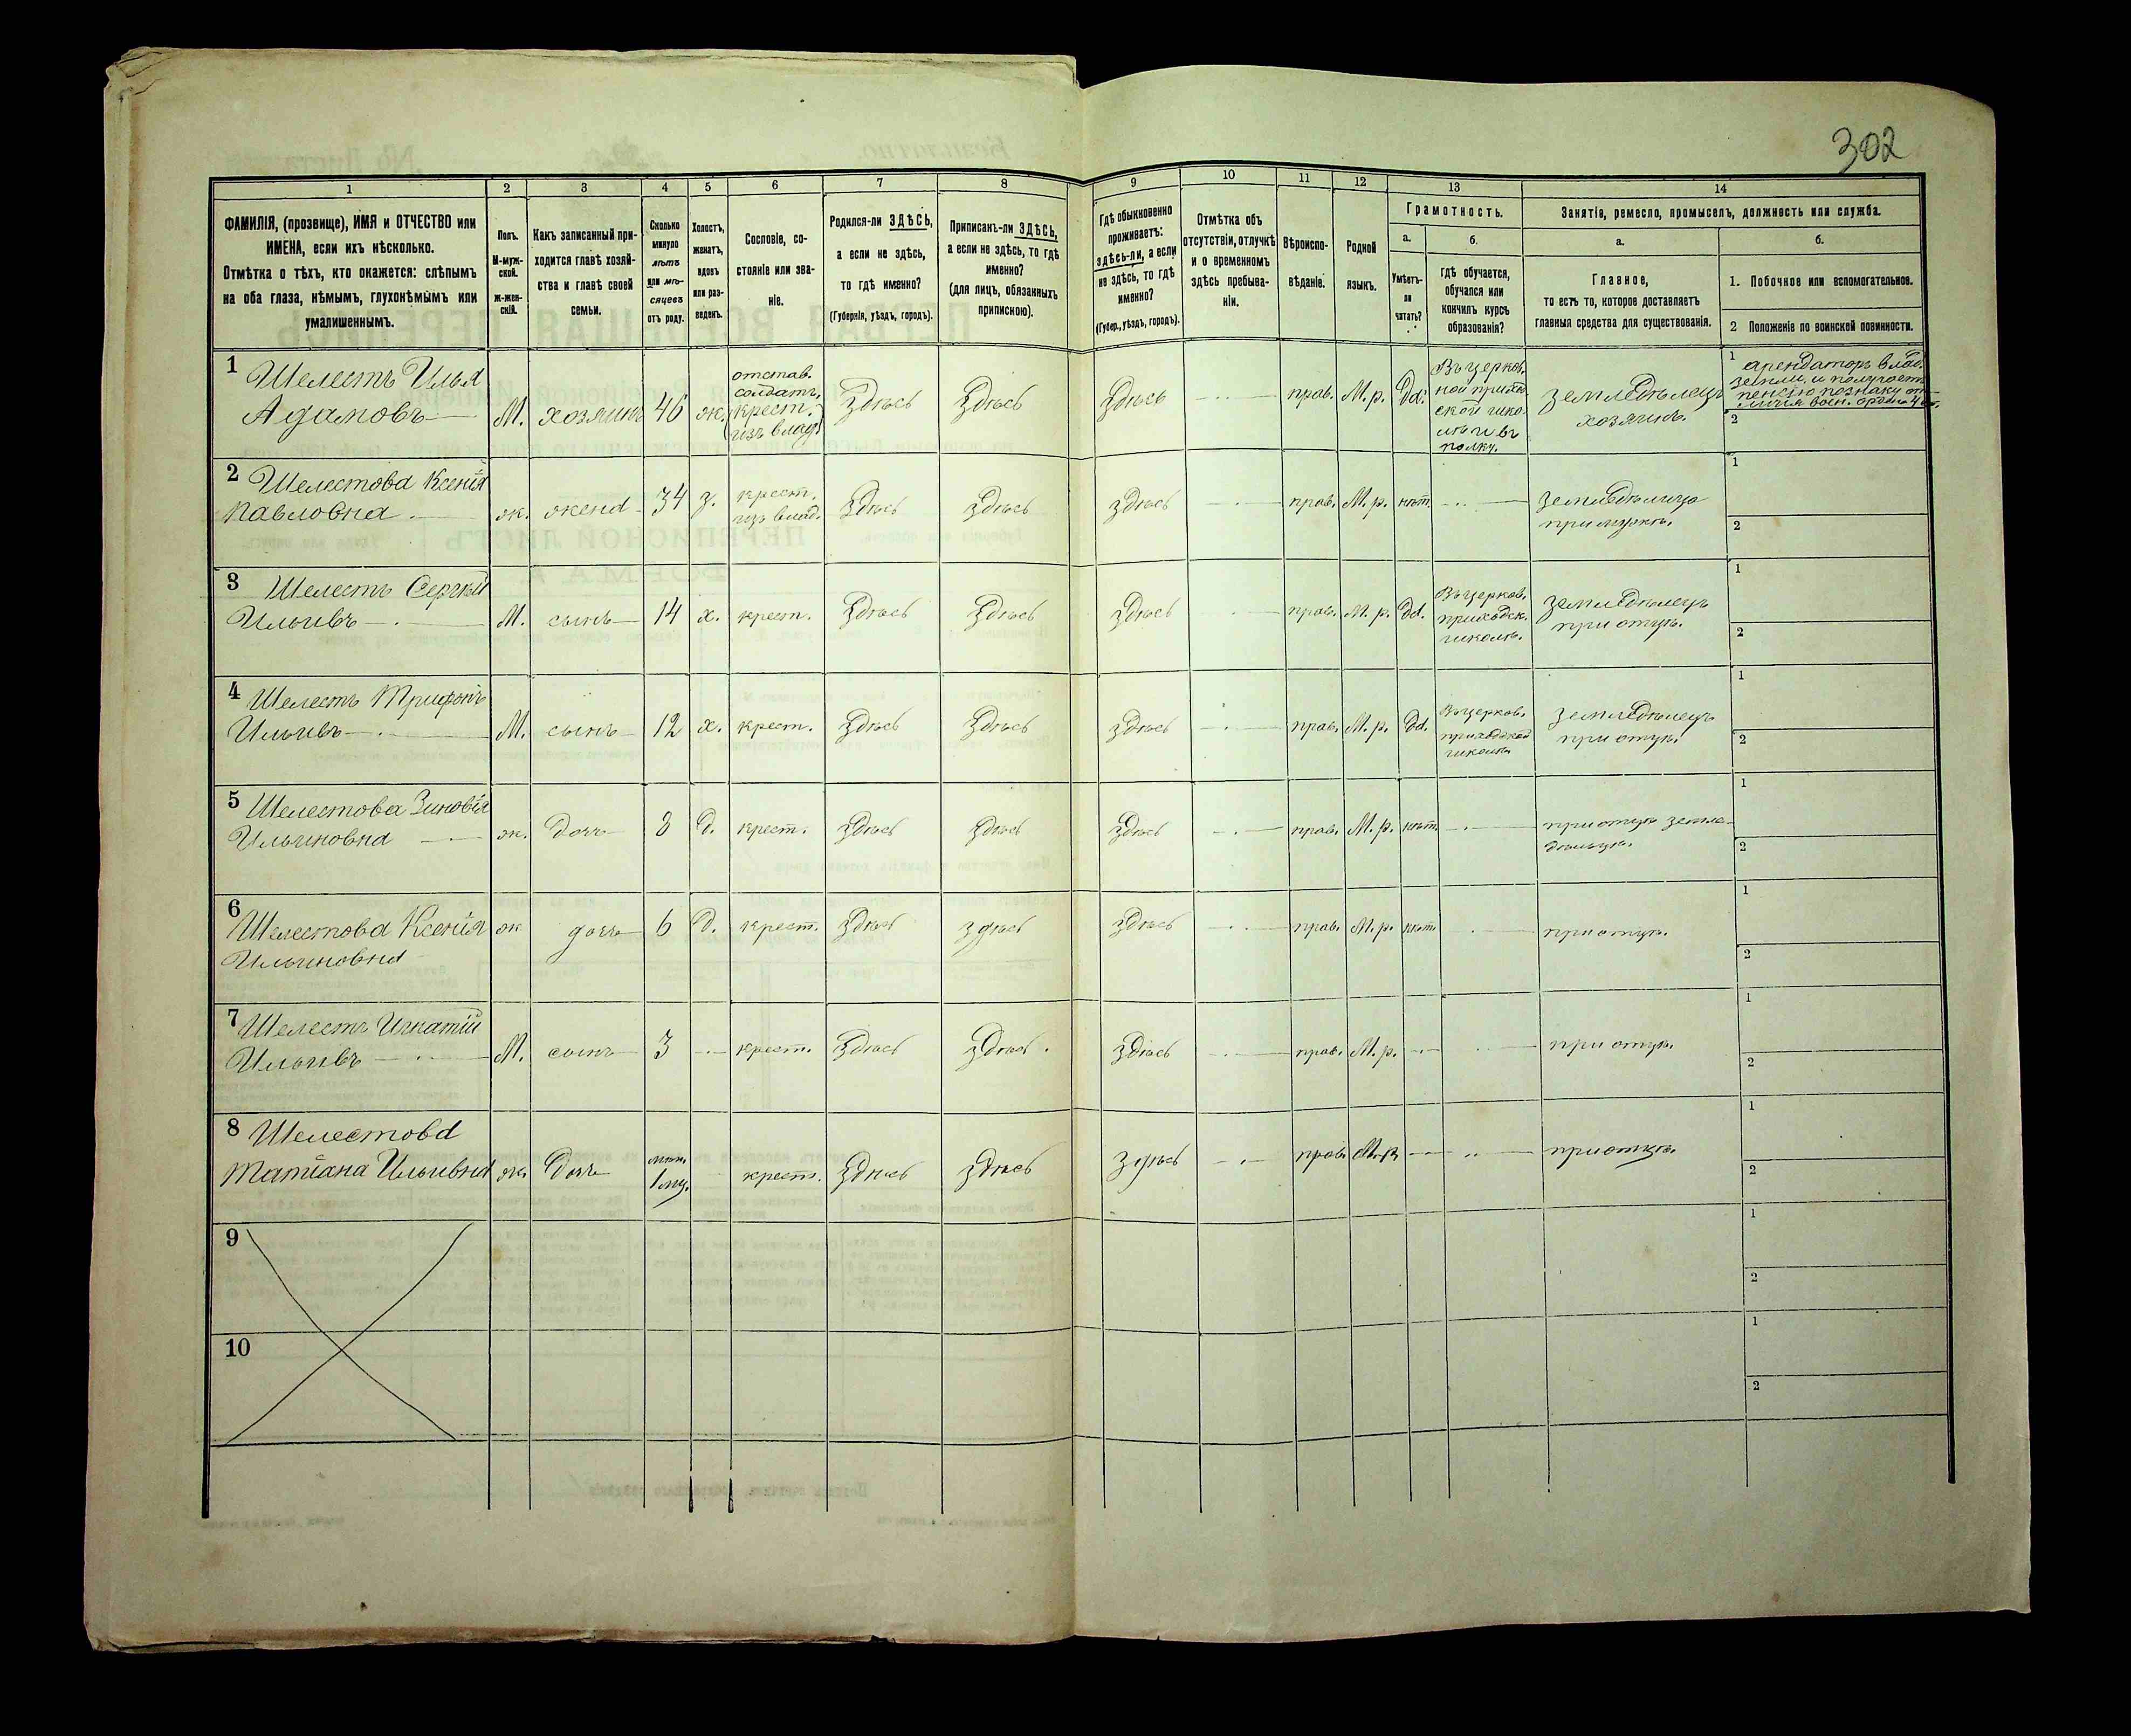 302
1 2 3 4 5 6 7 8 9 10 11 12 13 14
ФАМИЛІЯ, (прозвище), ИМЯ и ОТЧЕСТВО или
ИМЕНА, если ихъ нѣсколько.
Отмѣтка о тѣхъ, кто окажется: слѣпымъ
на оба глаза, нѣмымъ, глухонѣмымъ или
умалишеннымъ.
Полъ.
М-муж-
ской.
Ж-жен-
скій.
Какъ записанный при-
ходится главѣ хозяй-
ства и главѣ своей
семьи.
Сколько
минуло
лѣтъ
или мѣ-
сяцевъ
отъ роду.
Холостъ,
женатъ,
вдовъ
или раз-
веденъ.
Сословіе, со-
стояніе или зва-
ніе.
Родился-ли ЗДѢСЬ,
а если не здѣсь,
то гдѣ именно?
(Губернія, уѣздъ, городъ).
Приписанъ-ли ЗДѢСЬ,
а если не здѣсь, то гдѣ
именно?
(для лицъ, обязанныхъ
припискою).
Гдѣ обыкновенно
проживаетъ:
здѣсь-ли, а если
не здѣсь, то гдѣ
именно?
(Губер., уѣздъ, городъ).
Отмѣтка объ
отсутствіи, отлучкѣ
и о временномъ
здѣсь пребыва-
ніи.
Вѣроиспо-
вѣданіе.
Родной
языкъ.
Грамотность.
а.
Умѣетъ-
ли
читать?
б.
Гдѣ обучается,
обучался или
кончилъ курсъ
образованія?
Занятіе, ремесло, промыселъ, должность или служба.
а.
Главное,
то есть то, которое доставляетъ
главныя средства для существованія.
б.
1. Побочное или вспомогательное.
2 Положеніе по воинской повинности.
1 Шелестъ Илья
Адамовъ
М. хозяинъ 46 ж.
отстав.
солдатъ,
крест.
(изъ влад.)
Здѣсь Здѣсь Здѣсь прав. М. р. Да.
Въ церков.
ной приход
ской шко
лѣ и въ
полку.
земледѣлецъ
хозяинъ.
1 арендаторъ влад.
земли, и получаетъ
пенсію по знаку от
личія воен. ордена 4 ст.
2
2 Шелестова Ксенія
Павловна
ж. жена 34 з.
крест.
изъ влад.
Здѣсь здѣсь здѣсь прав. М. р. нѣт.
земледѣлица
при мужѣ.
1
2
3 Шелестъ Сергѣй
Ильивъ
М. сынъ 14 х. крест. Здѣсь Здѣсь здѣсь прав. М. р. Да.
Въ церков.
приходск.
школѣ.
земледѣлецъ
при отцѣ.
1
2
4 Шелестъ Трифонъ
Ильивъ
М. сынъ 12 х. крест. Здѣсь Здѣсь здѣсь прав. М. р. Да.
Въ церков.
приходской
школѣ.
земледѣлецъ
при отцѣ.
1
2
5 Шелестова Зиновія
Ильиновна
ж. дочь 8 д. крест. Здѣсь здѣсь здѣсь прав. М. р. нѣт.
при отцѣ земле
дѣльцѣ.
1
2
6
Шелестова Ксенія
Ильиновна
ж дочь 6 д. крест. Здѣсь здѣсь здѣсь прав. М. р. нѣт.
при отцѣ.
1
2
7 Шелестъ Игнатій
Ильивъ
М. сынъ 3 крест. Здѣсь здѣсь. здѣсь прав. М. р.
при отцѣ.
1
2
8 Шелестова
Татіана Ильивна
ж. дочь
крест. Здѣсь здѣсь здѣсь прав. М. р.
при отцѣ.
1
2
9
1
2
10
1
2